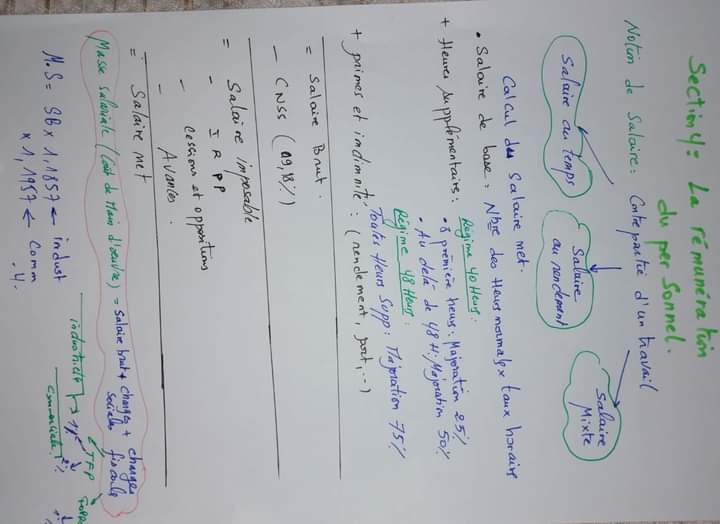 Section 4 = La rémunération
du personnel.
Notion de Salaire : Contrepartie d'un travail
Salaire au temps
Salaire au rendement
Salaire Mixte
Calcul du Salaire net.
• Salaire de base = Nbre des Heures normales x taux horaire
+ Heures supplémentaires :
Régime 40 Heures :
• 8 première heures : Majoration 25%
• Au delà de 48 H : Majoration 50%
Régime 48 Heures :
Toutes Heures Supp : Majoration 75%
+ primes et indemnité : (rendement, port, ...)
= Salaire Brut.
- CNSS (09,18%)
= Salaire imposable
- IRPP
- cessions et oppositions
- Avances.
= Salaire net
Masse salariale (Coût de Main d'oeuvre) = Salaire brut + charges sociale + charges fiscale
M.S = SB x 1,1857 ← indust
x 1,1957 ← Comm
.4.
industrielle → 1%
commerciale 2%
TFP